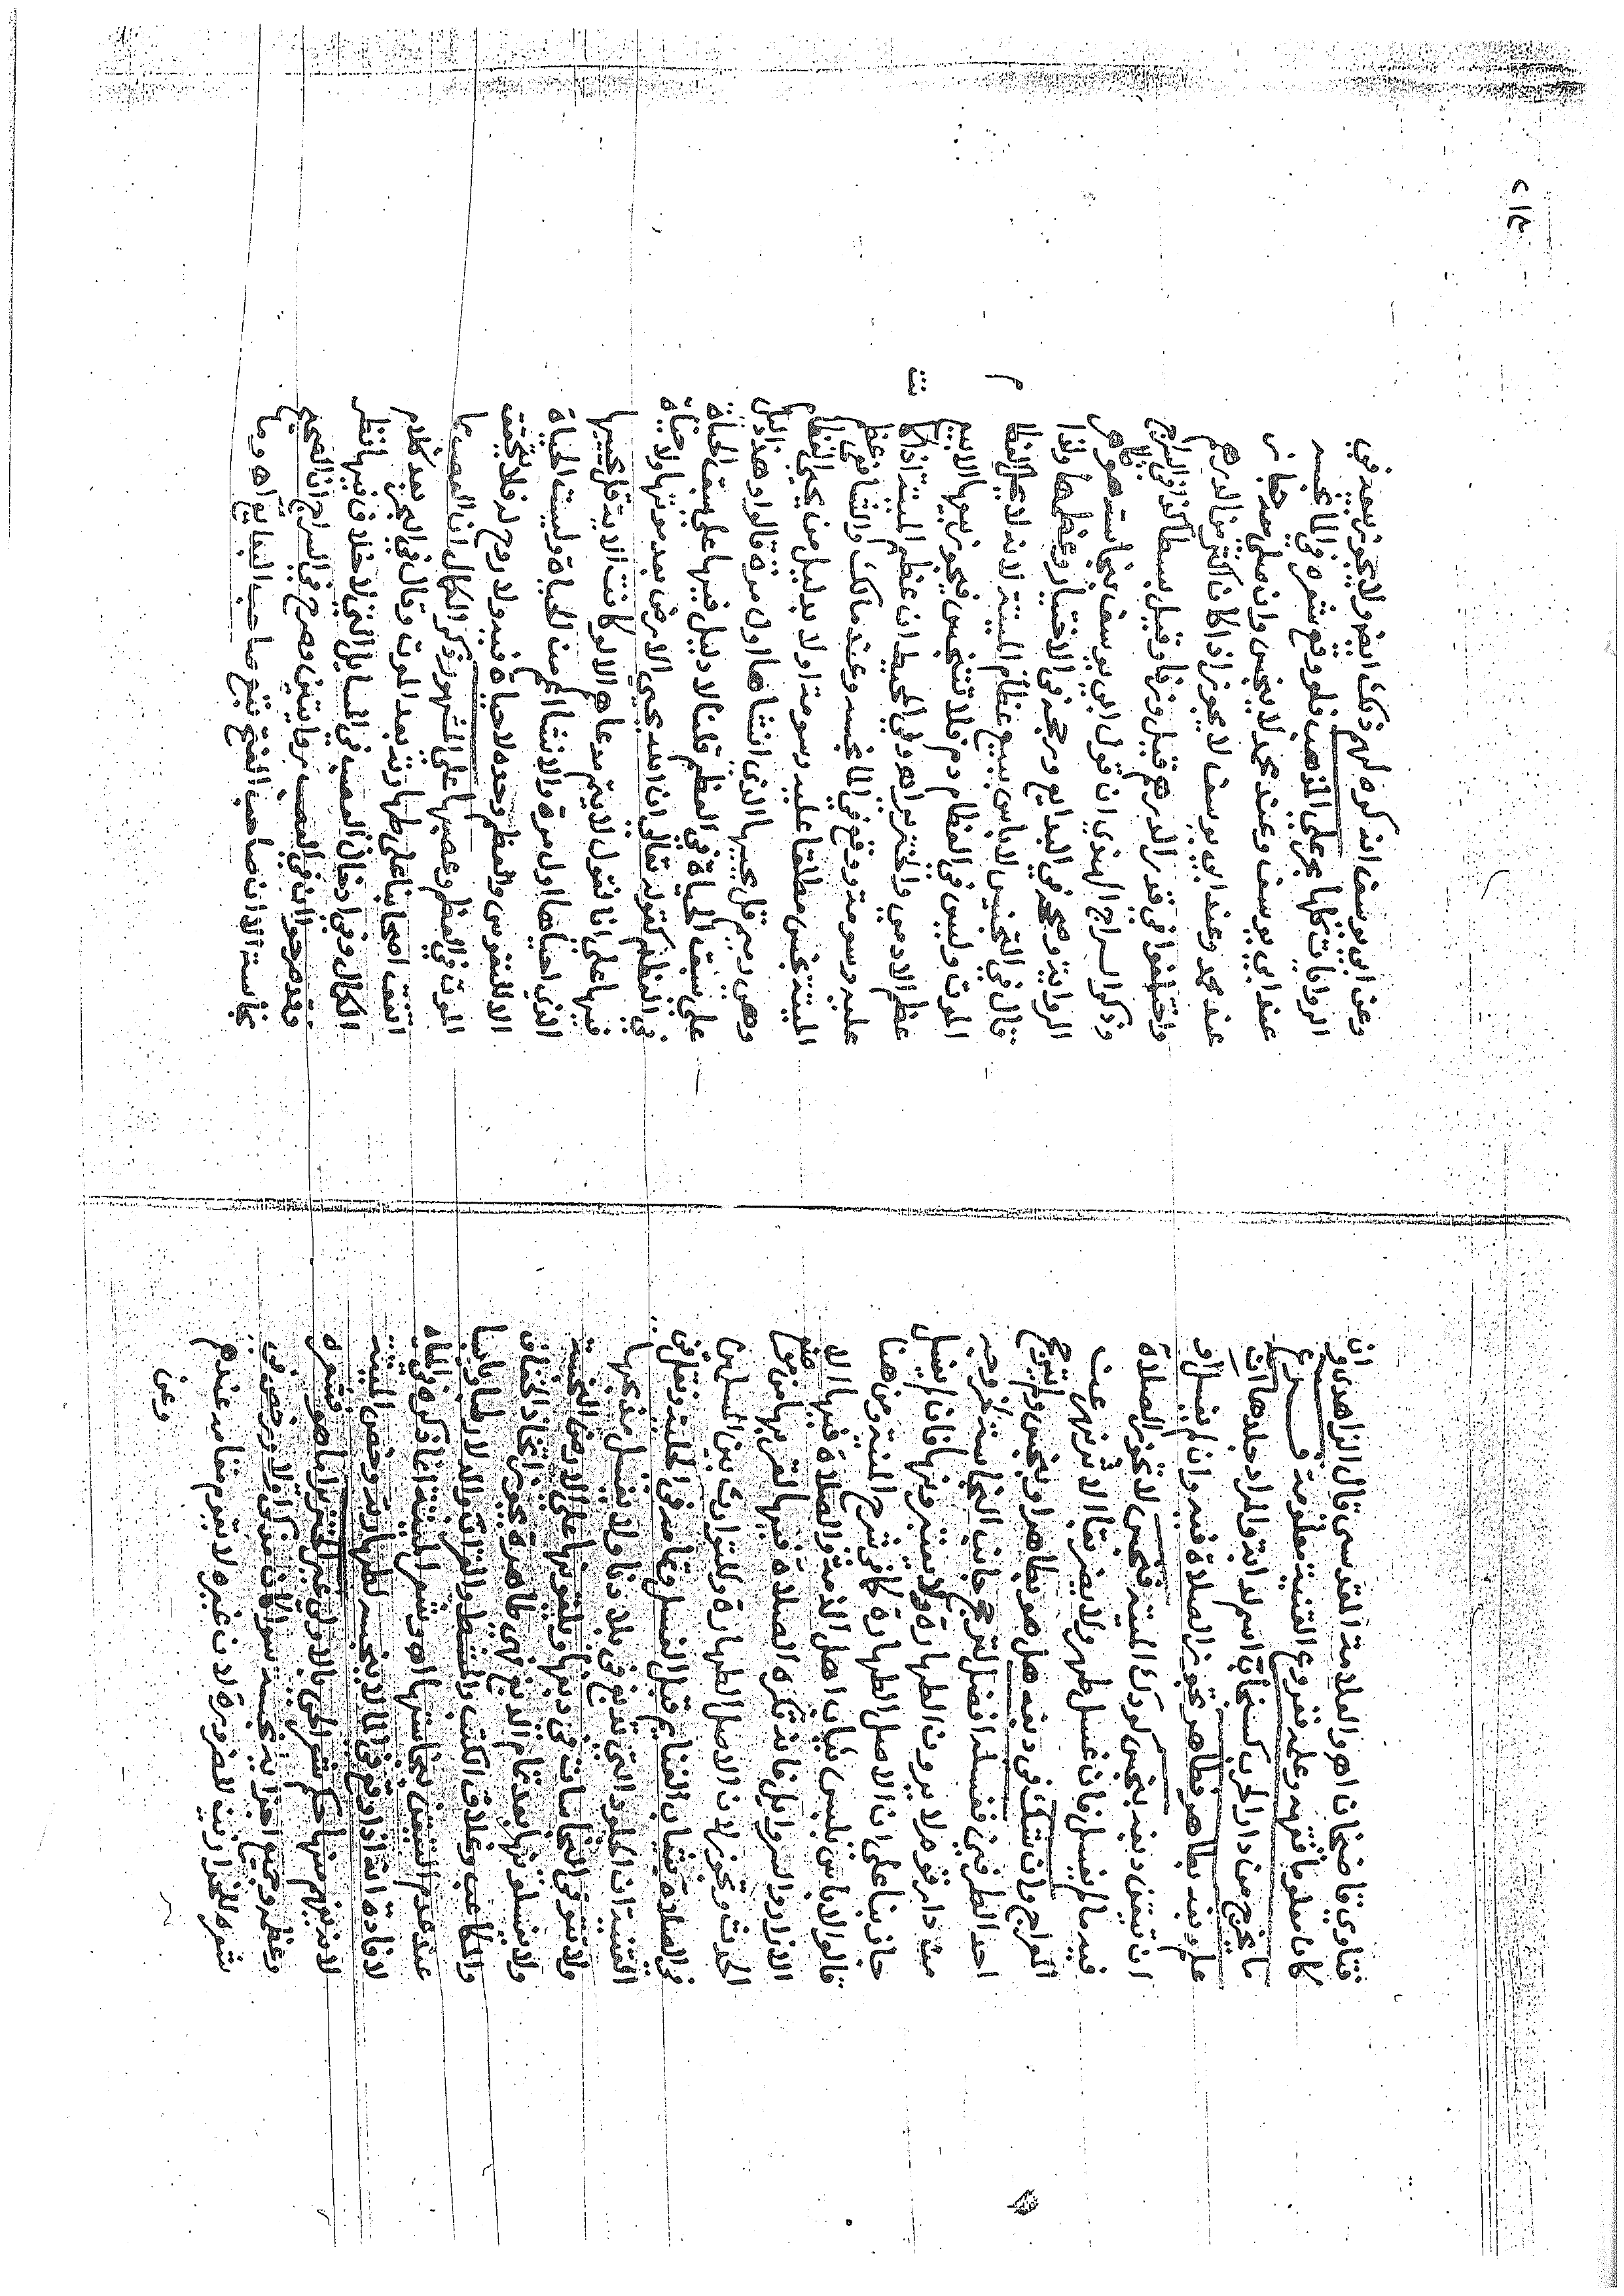 فتاوي قاضيخان اهو العلامة المقدسي قال الزاهدي وان
كانا معلوما فثمه وعليه فروع القنية معلومة فـــرع
ما يخرج من دار الحرب كسنجاب اسم لدابة والمراد جلدها ان
علم دبغه بطاهر فطاهر تجوز الصلاة فيه وان لم يغسل او
ان تيقن دبغه بنجس كودك الميتة فنجس لا تجوز الصلاة
فيه ما لم يغسل فان غسل طهر ولا يضر بقا الاثر نهر عن
السراج وان شك في دبغه هل هو بطاهر او بنجس ولم يترجح
احد الطرفين فغسله افضل لترجح جانب النجاسة بخروجه
من دار قوم لا يرون الطهارة ولا يعتبرونها فان لم يغسل
جاز بنا على ان الاصل الطهارة كافي شرح المنية ومن هنا
قالوا لا باس بلبس ثياب اهل الذمة والصلاة فيها الا
الازار والسراويل فانه تكره الصلاة فيها لقربها من موضع
الحدث وتجوز لان الاصل الطهارة وللتوارث بين المسلمين
في الصلاة بثياب الغنايم قبل الغسل وتمامه في الحلية ونقل في
القنية ان الجلود التي تدبغ في بلدنا ولا يغسل مذبحها
ولا تتوقى النجاسات في دبغها ويلقونها على الارض النجسة
ولا يغسلونها بعد تمام الدبغ فهي طاهرة يجوز اتخاذ الخفاف
والمكاعب وغلاف الكتب والمشط والقراب والدلا رطبا ويابسا
عند عدم التيقن بنجاستها اه وشعر الميتة انما ذكره في المياه
لافادة انه اذا وقع في الما لا ينجسه لطهارته وخص الميتة
لانه يفهم منها حكم شعر الحي بالاولى غير الخنزير اما هو فشعره
وعظمه وجميع اجزايه نجسة سوا كان مذكى او لا ورخص في
شعره للخرازين للضرورة لان غيره لا يقوم مقامه عندهم
وعن
وعن ابي يوسف انه كره لهم ذلك ايضا ولا يجوز بيعه في
الروايات كلها بحر على المذهب فلو وقع شعره في الما نجسه
عند ابي يوسف وعند محمد لا ينجس وان صلى معه جاز
عند محمد وعند ابي يوسف لا يجوز اذا كان اكثر من الدرهم
واختلفوا في قدر الدرهم قيل وزنا وقيل بسطا كذا في السراج
وذكر السراج الهندي ان قول ابي يوسف بنجاسته هو ظاهر
الرواية وصححه في البدايع ورجحه في الاختيار وعظمها ولذا
قال في التجنيس لا باس ببيع عظام الميتة لانه لا يحل العظام
الموت وليس في العظام دم فلا تتنجس فيجوز بيعها الا بيع
عظم الادمي والخنزير اه وفي المحيط ان عظم الميتة اذا كان
عليه دسومة ووقع في الما نجسه وعند مالك والشافعي عظم
الميتة نجس مطلقا عليه دسومة او لا بدليل من يحي العظام
وهي رميم قل يحييها الذي انشاها اول مرة قالوا وهذا دليل
على سبق الحياة في العظم قلنا لا دليل فيها على سبق الحياة
في العظم كقوله تعالى ان الله يحي الارض بعد موتها ولا حياة
فيها على انا نقول لا يتم مدعاهم الا لو كانت الاية قل يحييها
الذي احياها اول مرة والانشا اعم من الحياة وليست الحياة
الا للنفوس والعظم وحده لا حياة فيه ولا روح له فلا ينجث
الموت في العظم وعصبها على المشهور ذكر الكمال ان العصب مما
اتفق اصحابنا على طهارته بعد الموت وقال في البحر بعد كلام
الكمال وفي ادخال العصب في المسايل التي لا خلاف فيها نظر
فقد صرحوا ان في العصب روايتين وصرح في السراج ان الصحيح
نجاسته الا ان صاحب الفتح تبع صاحب البدايع اه وما